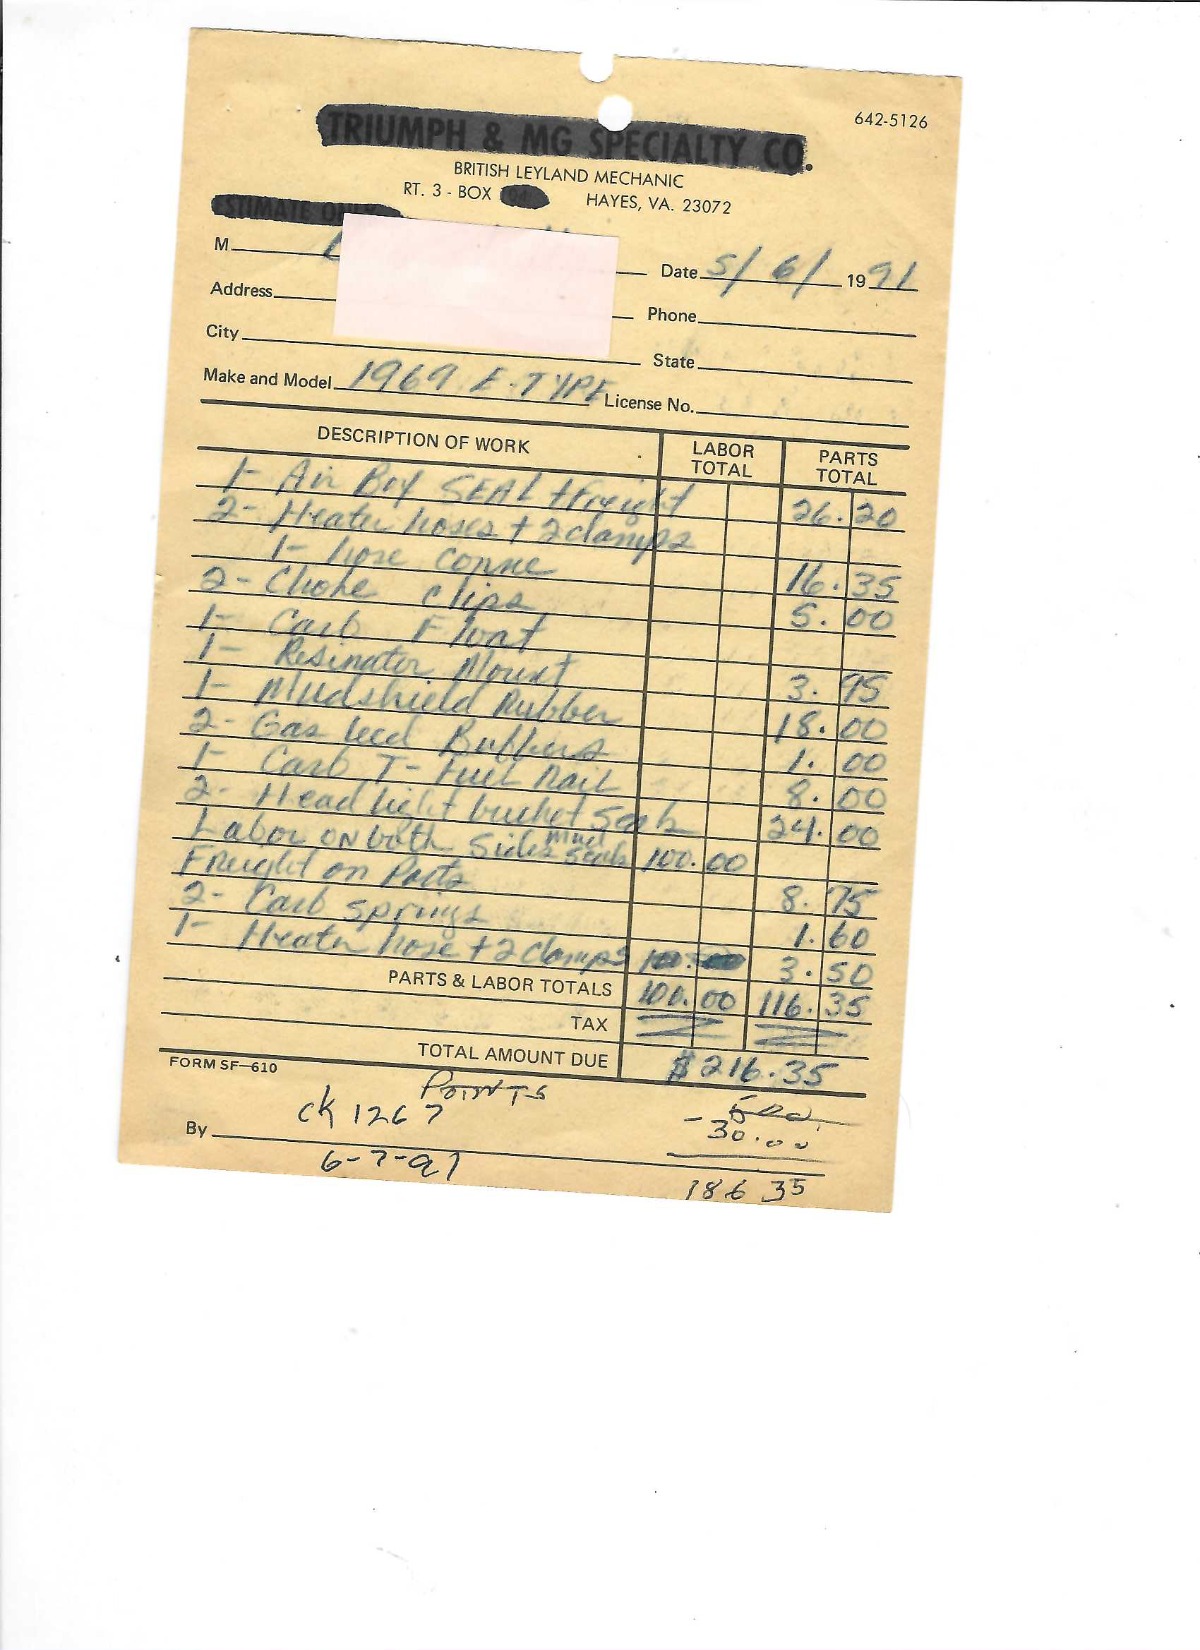 642-5126
TRIUMPH & MG SPECIALTY CO.
BRITISH LEYLAND MECHANIC
RT. 3 - BOX HAYES, VA. 23072
ESTIMATE ONLY
M Date 5/6/ 1991
Address Phone
City State
Make and Model 1969 E-TYPE License No.
DESCRIPTION OF WORK LABOR TOTAL PARTS TOTAL
1- Air Box SEAL + Freight 26.20
2- Heater hoses + 2 clamps
1- hose conne 16.35
2- Choke clips 5.00
1- Carb Float
1- Resinator Mount 3.95
1- Mudshield Rubber 18.00
2- Gas lid Buffers 1.00
1- Carb T- Fuel Rail 8.00
2- Head light bucket Seals 24.00
Labor on both Sides mud seals 100.00
Freight on Parts 8.75
2- Carb springs 1.60
1- Heater hose + 2 clamps 3.50
PARTS & LABOR TOTALS 100.00 116.35
TAX
TOTAL AMOUNT DUE $216.35
FORM SF-610
POINTS
ck 1267 - 30.00
By
6-7-91 186 35